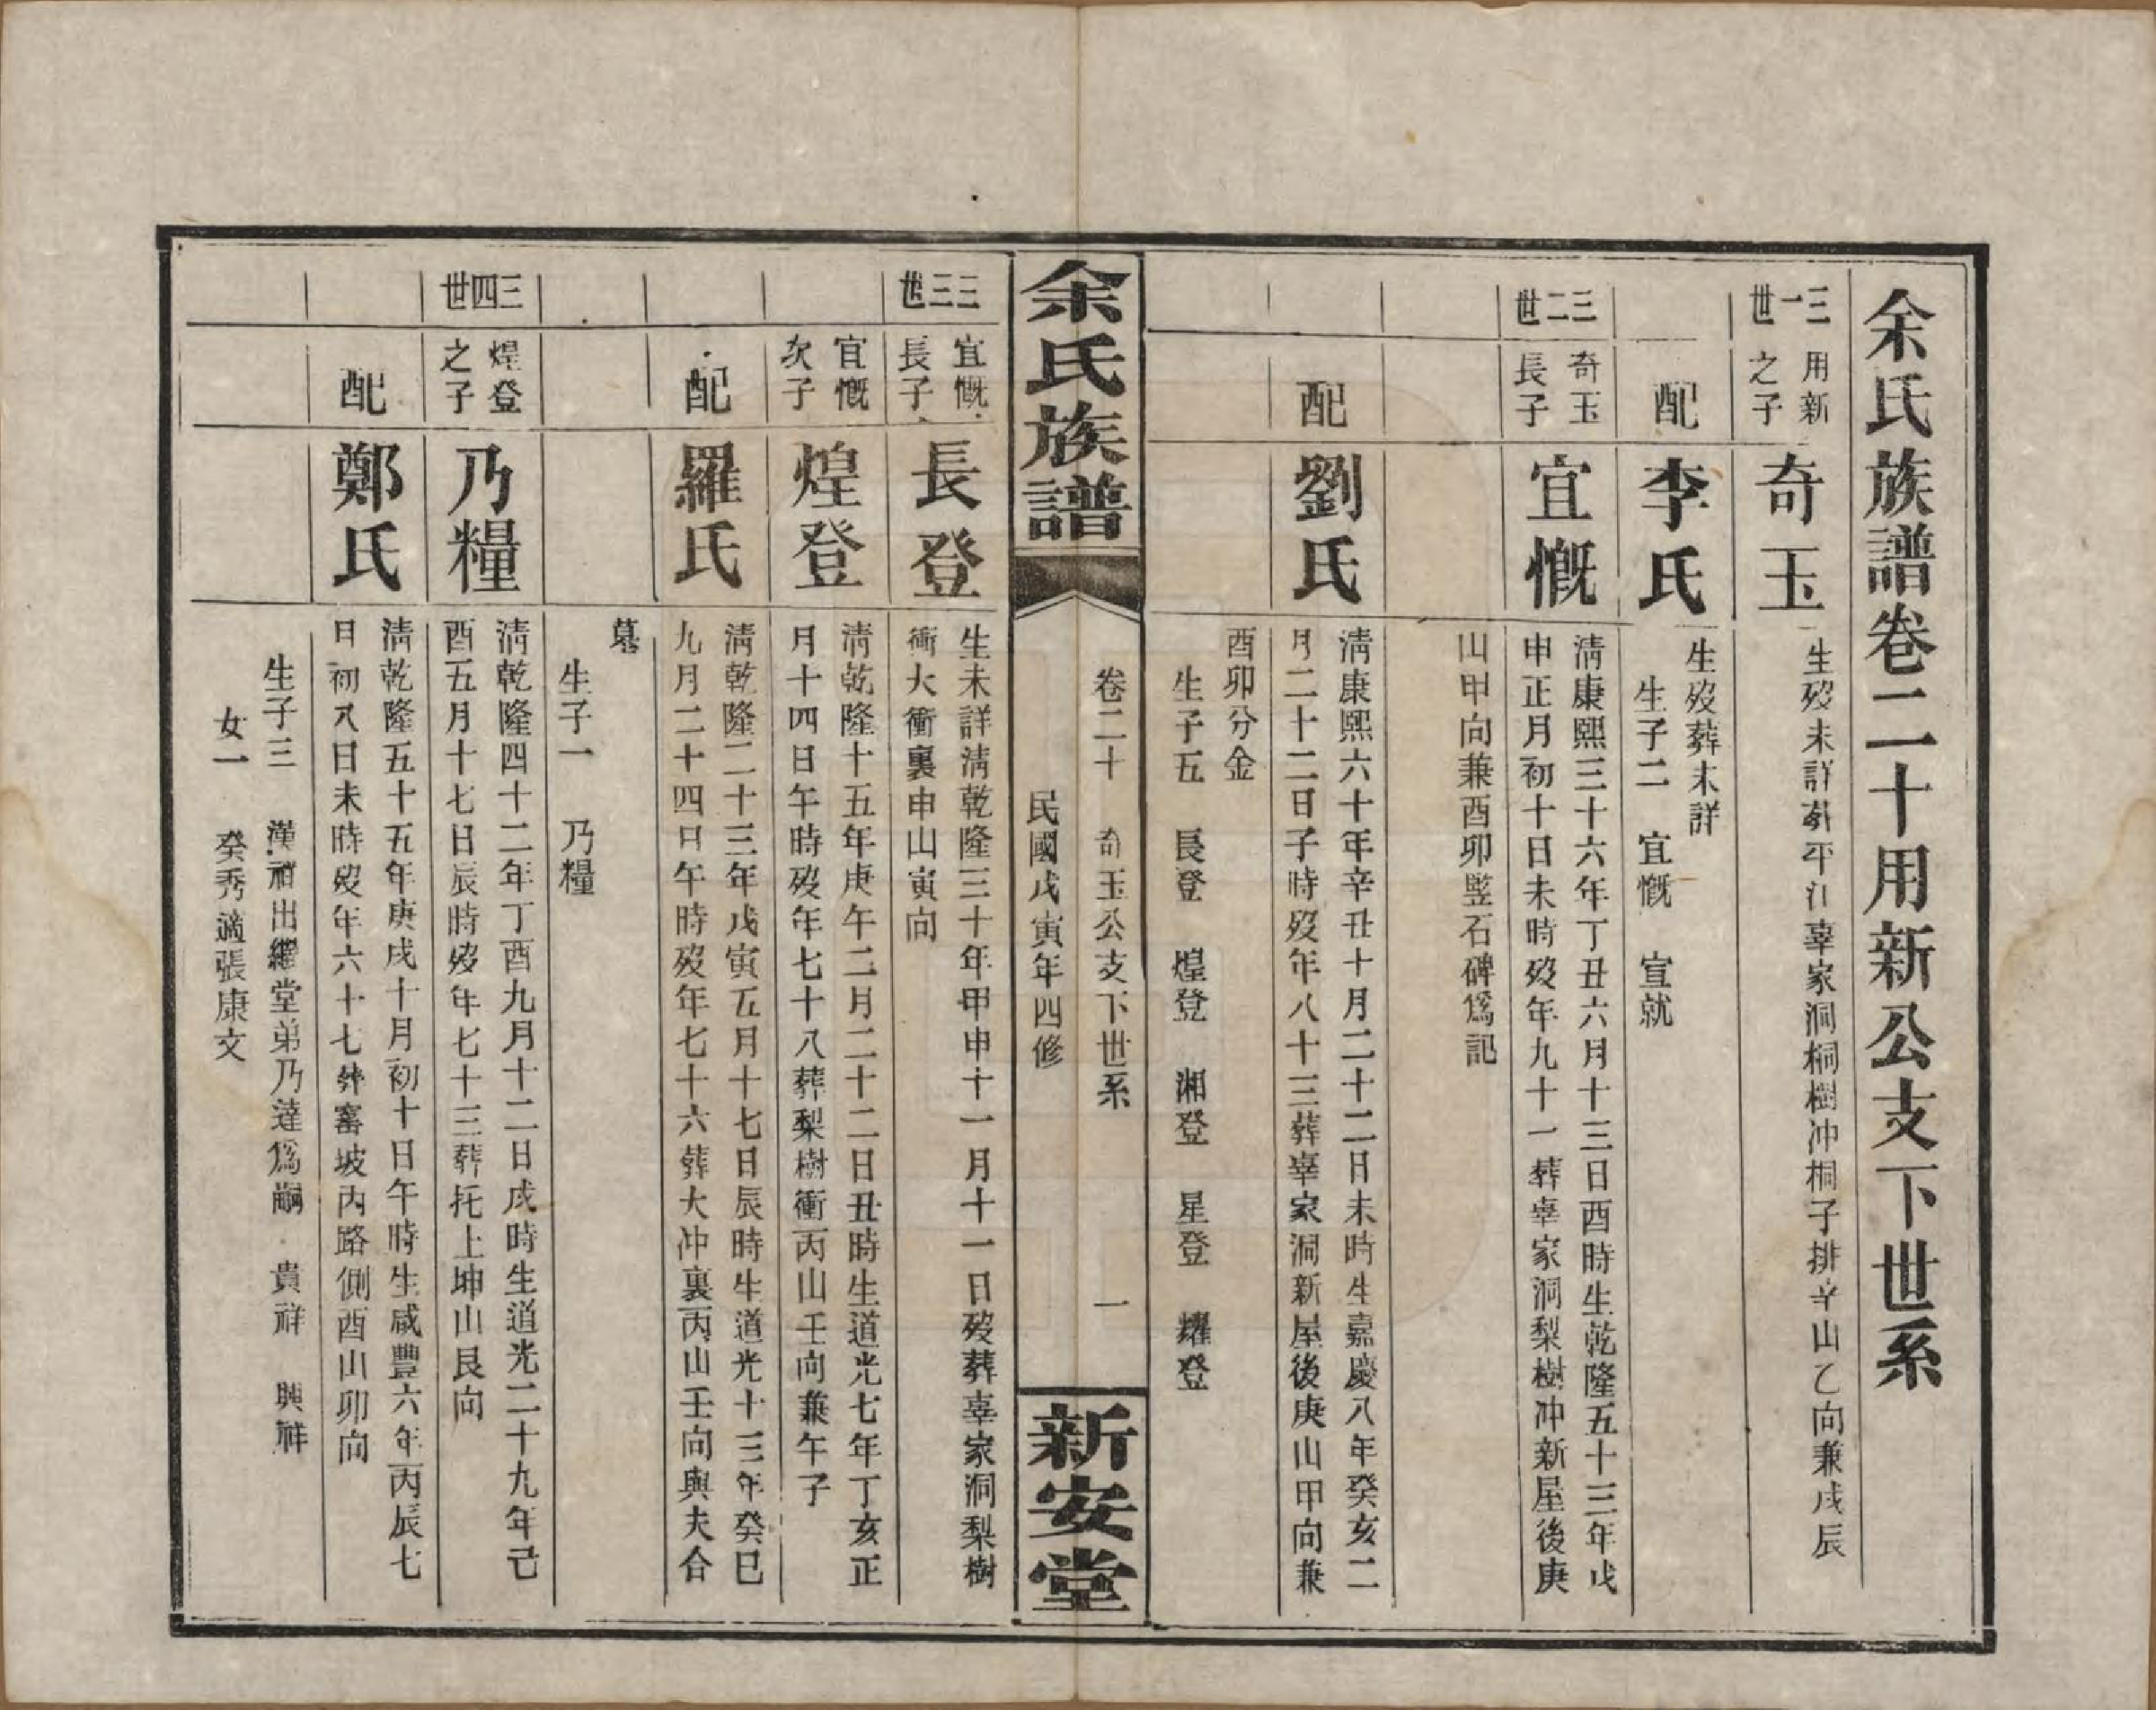 余氏族譜卷二十用新公支下世系
三一世
用新
之子
奇玉
生歿未詳葬平江辜家洞桐樹冲桐子排辛山乙向兼戌辰
配
李氏
生歿葬未詳
生子二 宜慨 宣就
三二世
奇玉
長子
宜慨
淸康熙三十六年丁丑六月十三日酉時生乾隆五十三年戊
申正月初十日未時歿年九十一葬辜家洞梨樹冲新屋後庚
山甲向兼酉卯竪石碑爲記
配
劉氏
淸康熙六十年辛丑十月二十二日未時生嘉慶八年癸亥二
月二十二日子時歿年八十三葬辜家洞新屋後庚山甲向兼
酉卯分金
生子五 長登 煌登 湘登 星登 耀登
余氏族譜
卷二十 奇玉公支下世系 一
民國戊寅年四修
新安堂
三三世
宜慨
長子
長登
生未詳淸乾隆三十年甲申十一月十一日歿葬辜家洞梨樹
衝大衝裏申山寅向
宜慨
次子
煌登
淸乾隆十五年庚午二月二十二日丑時生道光七年丁亥正
月十四日午時歿年七十八葬梨樹衝丙山壬向兼午子
配
羅氏
淸乾隆二十三年戊寅五月十七日辰時生道光十三年癸巳
九月二十四日午時歿年七十六葬大冲裏丙山壬向與夫合
墓
生子一 乃糧
三四世
煌登
之子
乃糧
淸乾隆四十二年丁酉九月十二日戌時生道光二十九年己
酉五月十七日辰時歿年七十三葬托上坤山艮向
配
鄭氏
淸乾隆五十五年庚戌十月初十日午時生咸豐六年丙辰七
日初八日未時歿年六十七葬窰坡內路側酉山卯向
生子三 漢禎出繼堂弟乃達爲嗣 貴祥 興祥
女一 癸秀適張康文